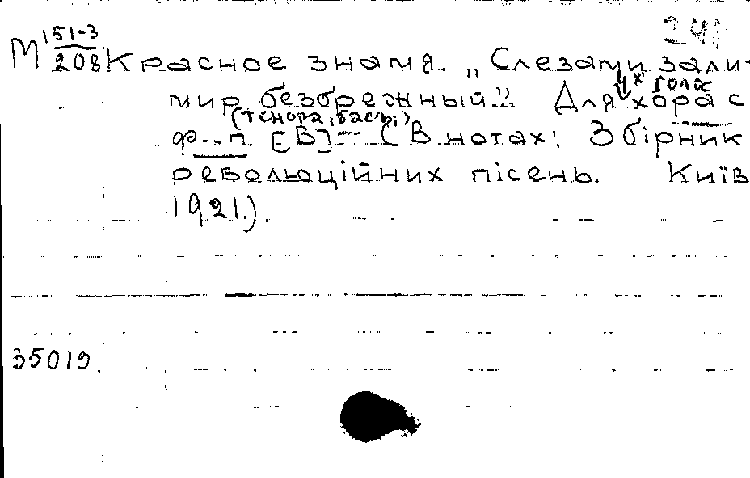 241
М 151-3/208 Красное знамя. „Слезами зали-
мир безбрежный". Для 4х голос хора с
(тенора, басы)
ф.-п. [В] – (В нотах: Збірник
революційних пісень. Київ
1921.).
35019